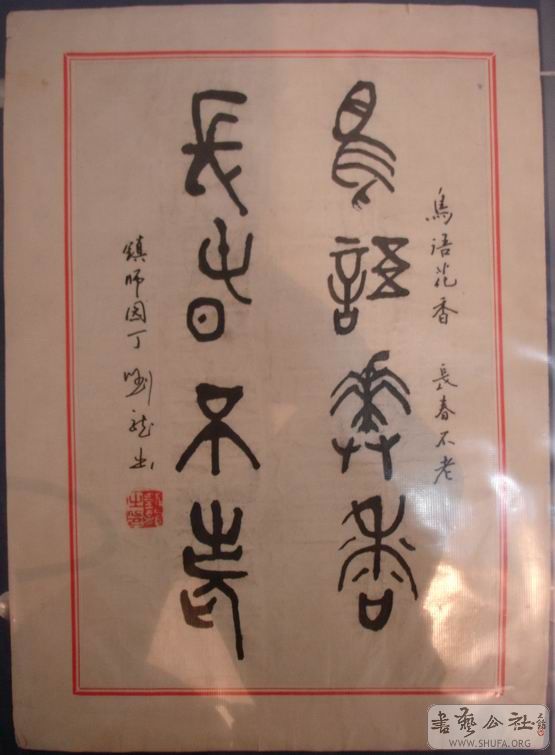 鳥语花香 長春不老
鳥語華香
長春不老
鎮师园丁
書藝公社
WWW.SHUFA.ORG